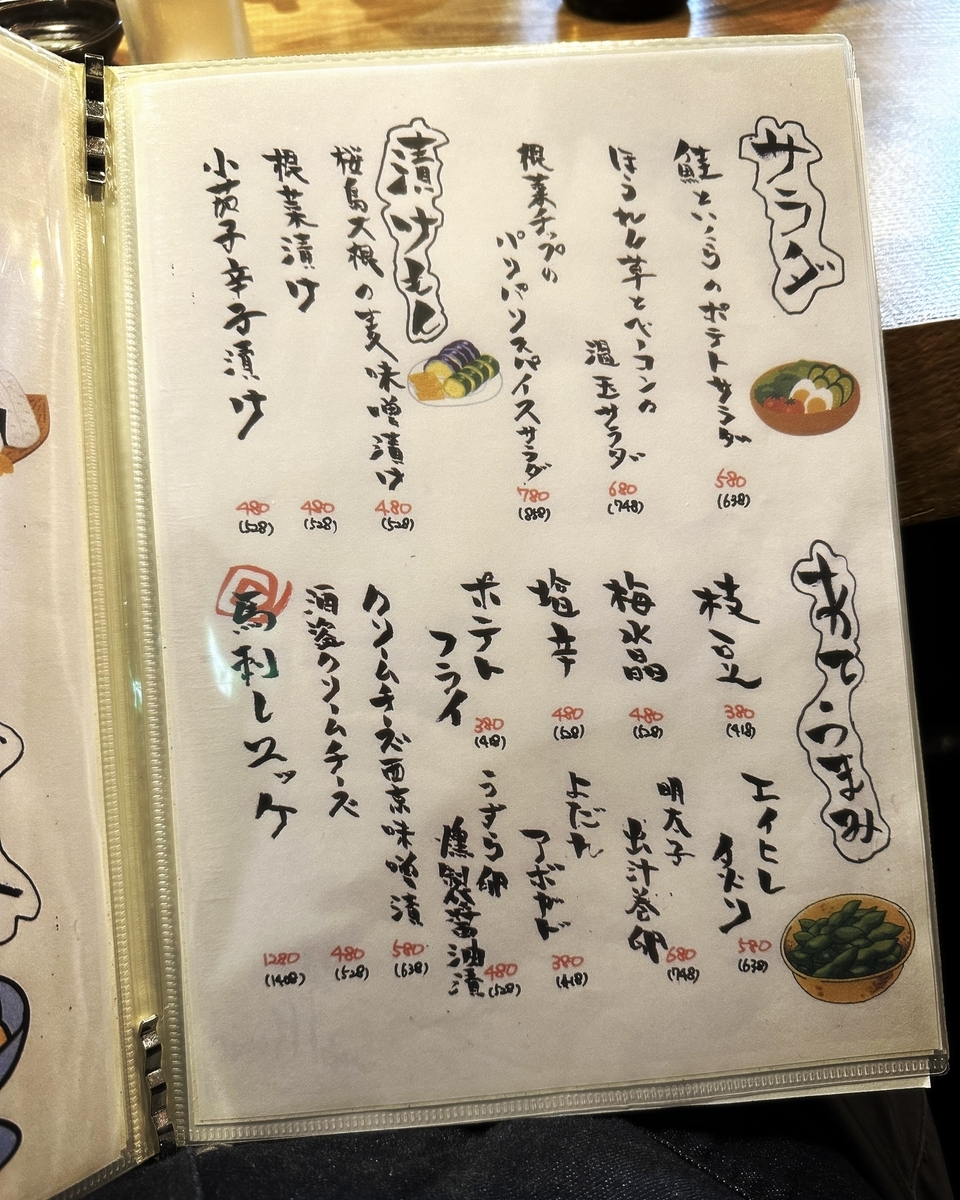 サラダ
鮭といくらのポテトサラダ
580
(638)
ほうれん草とベーコンの
温玉サラダ
680
(748)
根菜チップの
パリパリスパイスサラダ
780
(858)
漬けもん
桜島大根の麦味噌漬け
480
(528)
根菜漬け
480
(528)
小茄子辛子漬け
480
(528)
あてうまみ
枝豆
380
(418)
梅水晶
480
(528)
塩辛
480
(528)
ポテト
フライ
380
(418)
エイヒレ
炙り
580
(638)
明太子
出汁巻卵
680
(748)
よだれ
アボカド
380
(418)
うずら卵
燻製醤油漬
480
(528)
クリームチーズ西京味噌漬
580
(638)
酒盗クリームチーズ
480
(528)
馬刺しユッケ
1280
(1408)